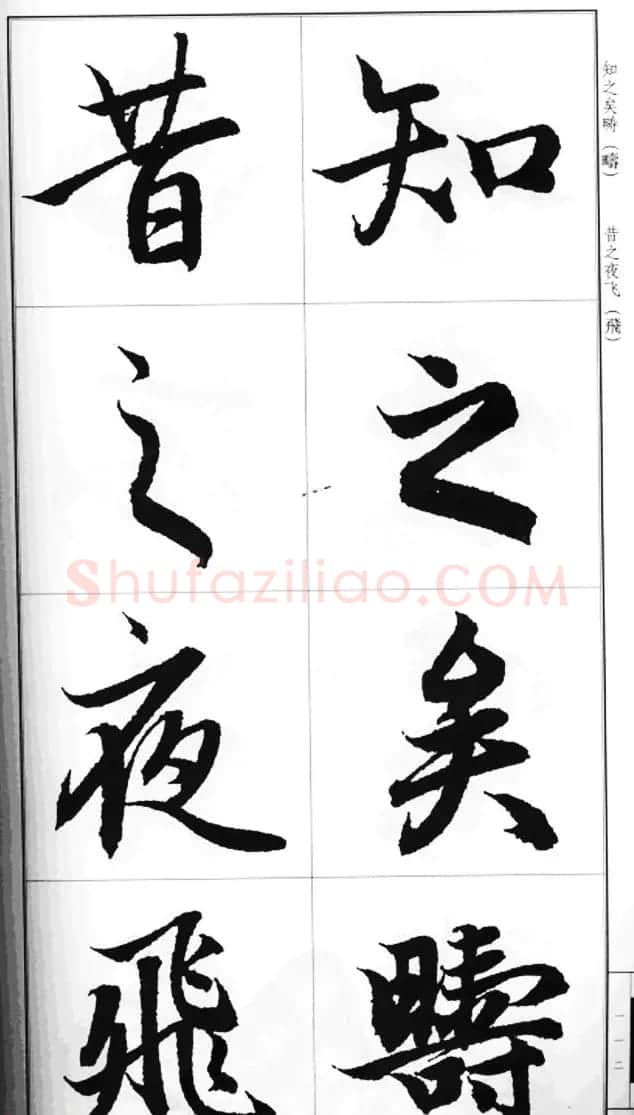 知之矣疇
昔之夜飛
知之矣畴（疇） 昔之夜飞（飛）
一一二
Shufaziliao.COM